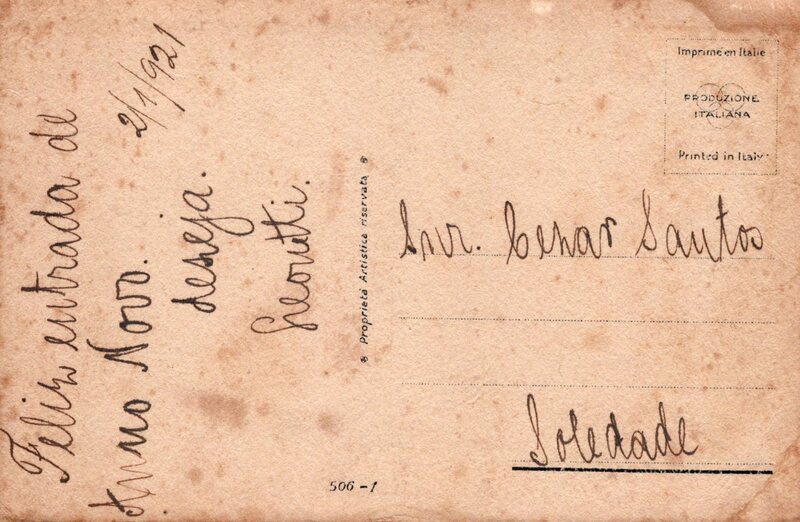 Feliz entrada de
Anno Novo. 2/1/921
deseja.
Leonetti.
Proprietà Artistica riservata
506-1
Imprimé en Italie
PRODUZIONE
ITALIANA
Printed in Italy
Snr. Cesar Santos
Soledade